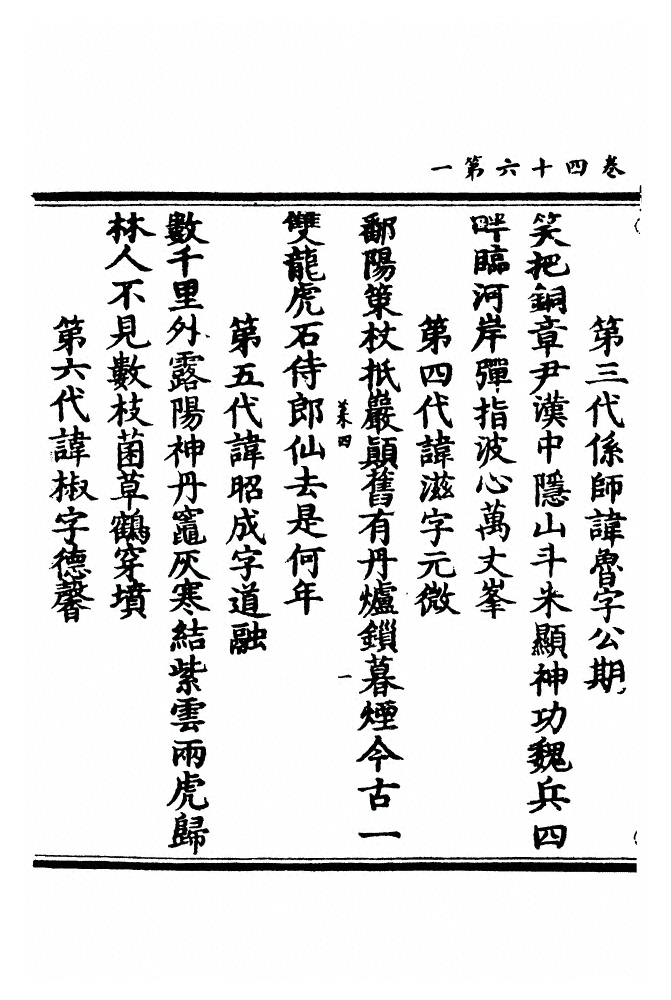 卷四十六第一
第三代係師諱魯字公期
笑把銅章尹漢中隱山斗米顯神功魏兵四
畔臨河岸彈指波心萬丈峯
第四代諱滋字元微
鄱陽策杖抵巖顛舊有丹爐鎖暮煙今古一
菓四 一
雙龍虎石侍郎仙去是何年
第五代諱昭成字道融
數千里外露陽神丹竈灰寒結紫雲兩虎歸
林人不見數枝菌草鶴穿墳
第六代諱椒字德馨